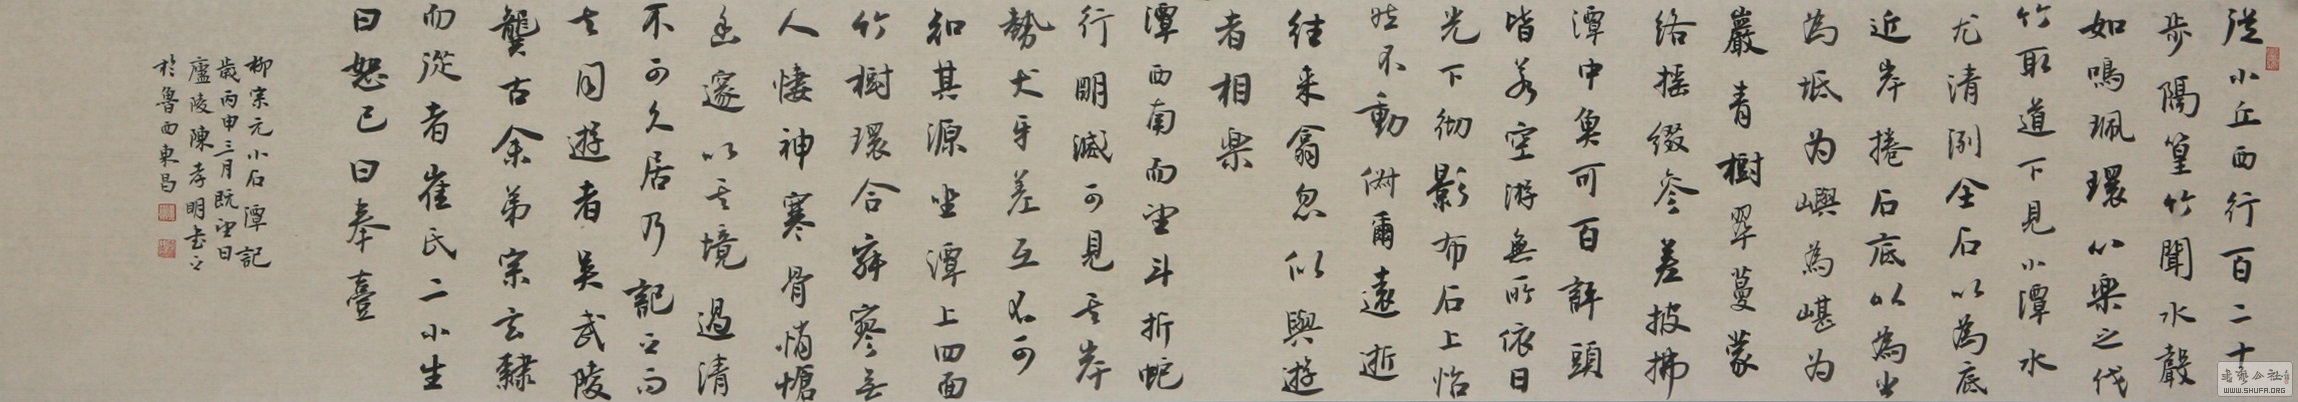 從小丘西行百二十
步隔篁竹聞水聲
如鳴珮環心樂之伐
竹取道下見小潭水
尤清洌全石以為底
近岸捲石底以為出
為坻为嶼為嵁为
巖青樹翠蔓蒙
络摇缀参差披拂
潭中魚可百許頭
皆若空游無所依日
光下彻影布石上怡
然不動俶爾遠逝
往来翕忽似與遊
者相樂
潭西南而望斗折蛇
行明滅可見其岸
勢犬牙差互不可
知其源坐潭上四面
竹樹環合寂寥無
人悽神寒骨悄愴
幽邃以其境過清
不可久居乃記之而
去同遊者吴武陵
龔古余弟宗玄隸
而從者崔氏二小生
曰恕已曰奉壹
柳宗元小石潭記
歲丙申三月既望日
廬陵陳孝明书之
於魯西東昌
書藝公社
WWW.SHUFA.ORG